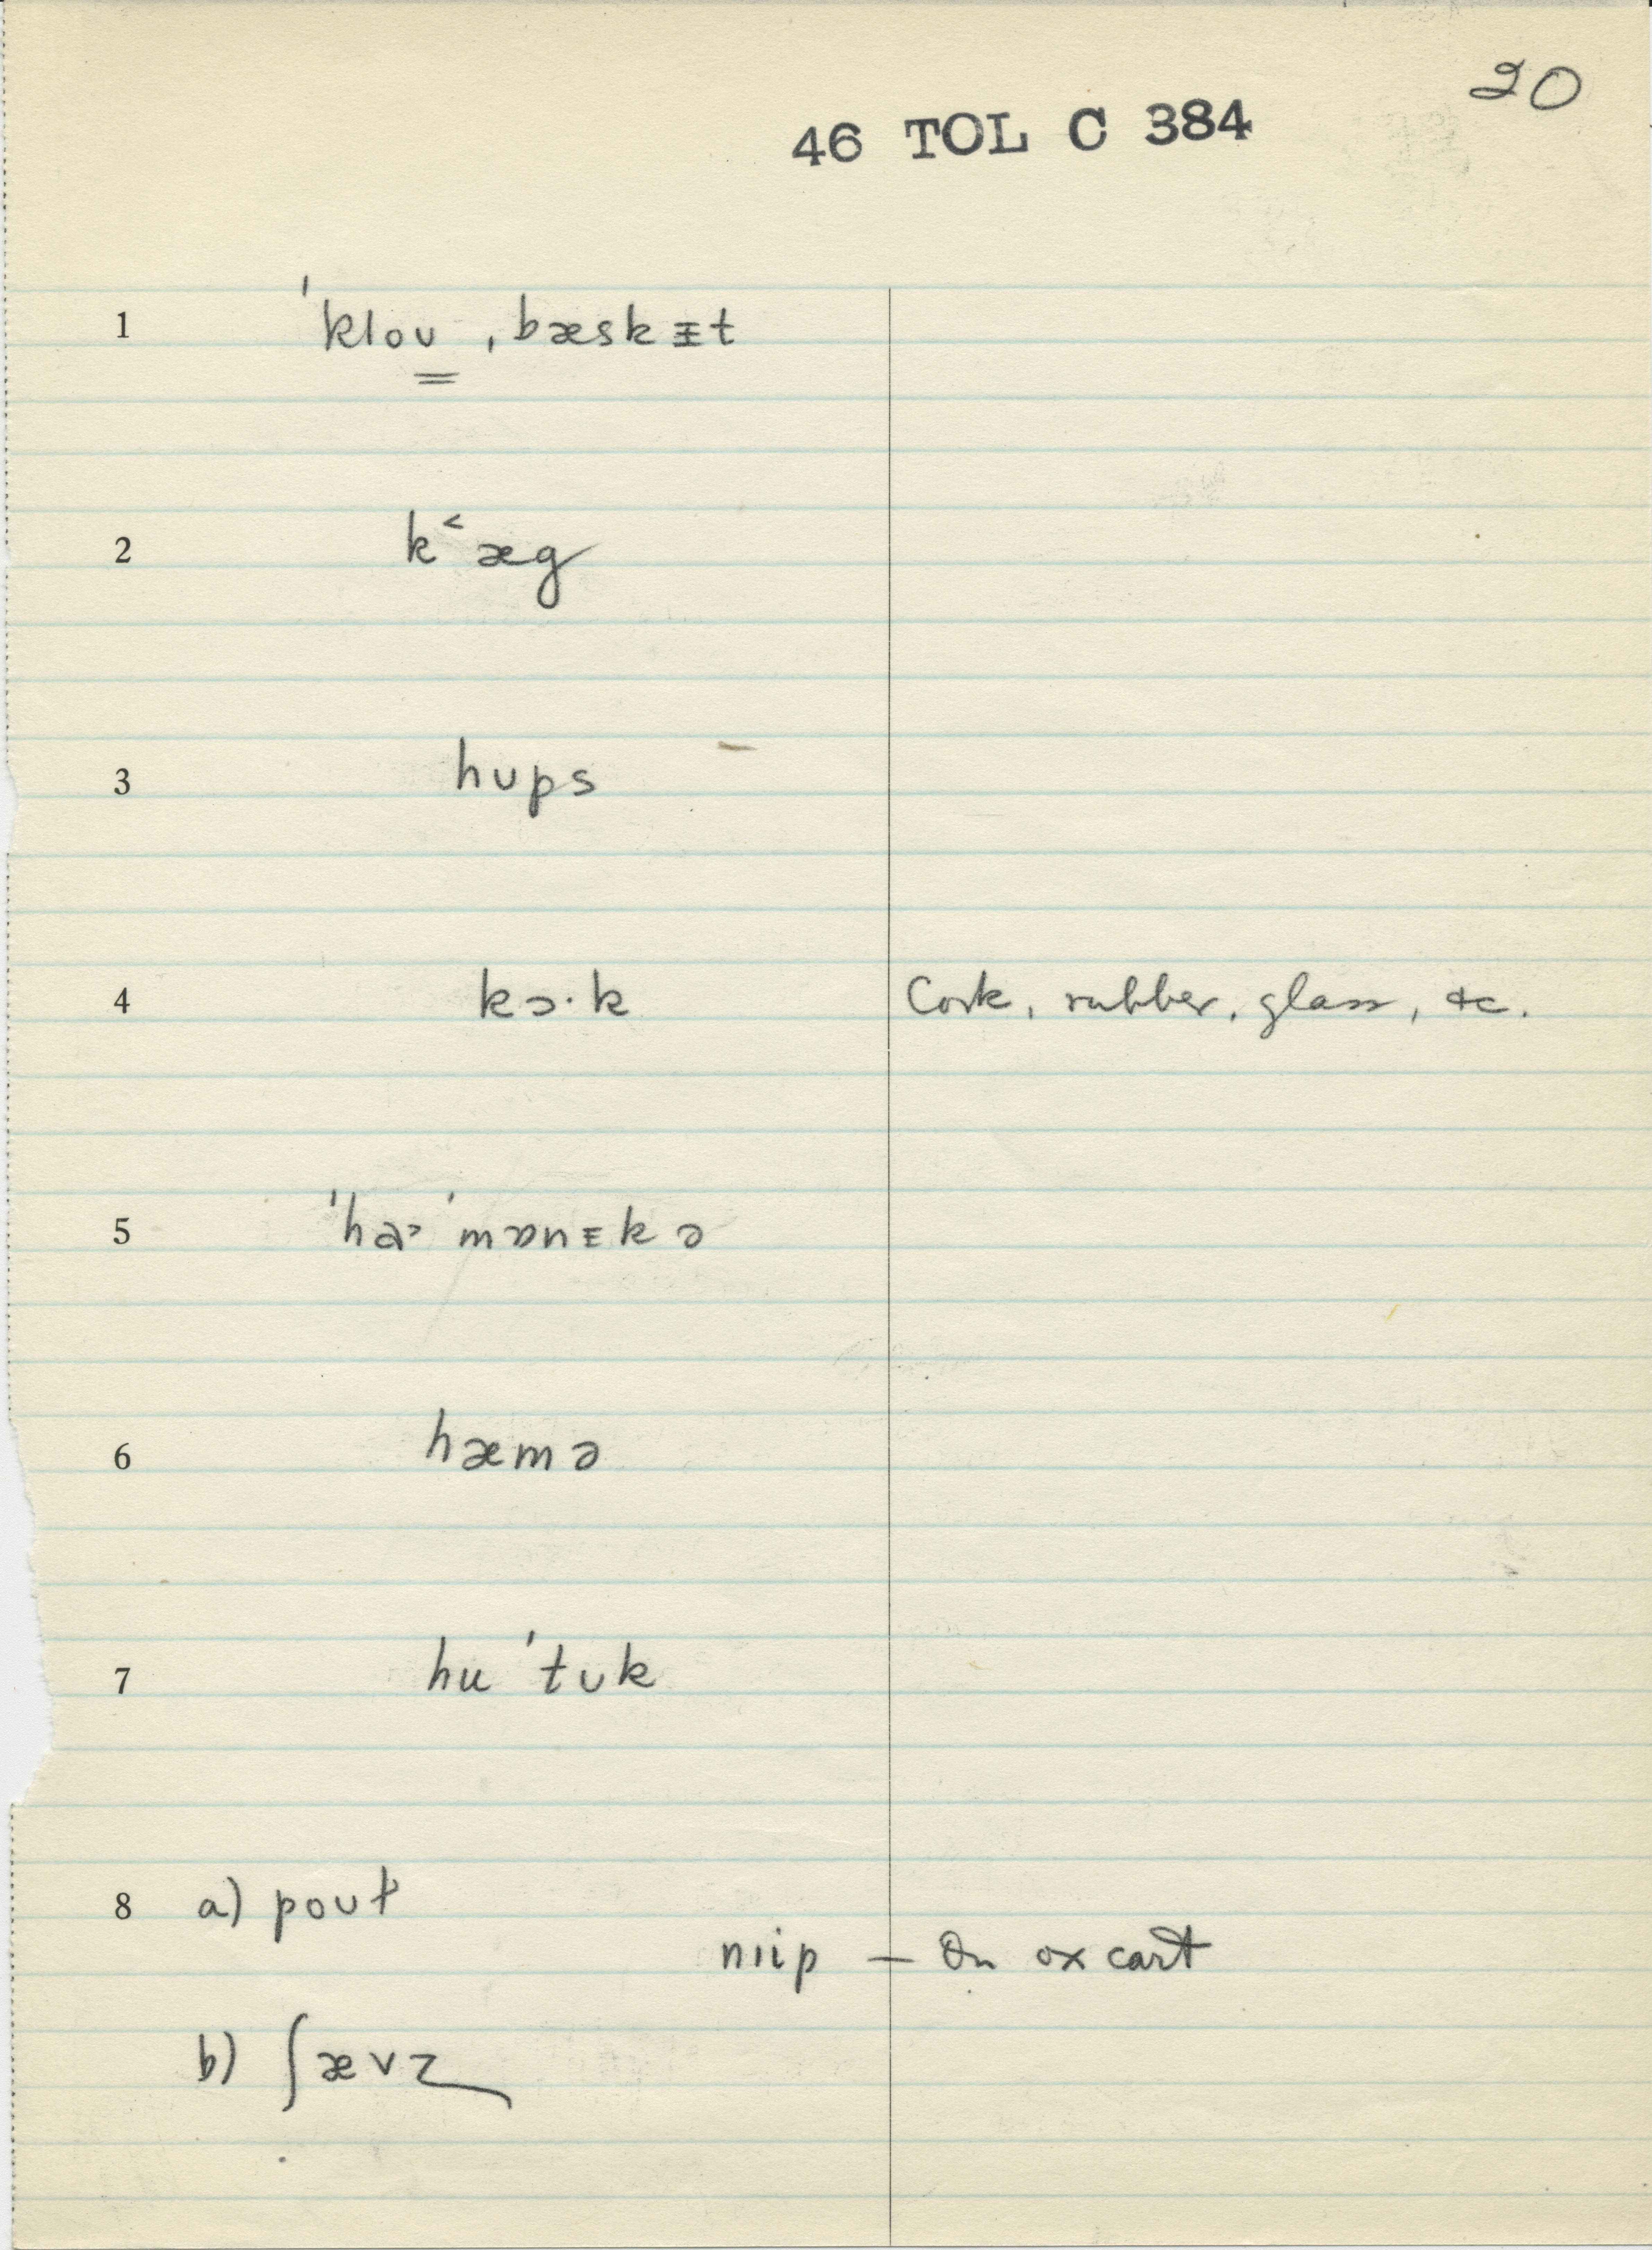 20
46 TOL C 384
1 ˈkloʊ ˌbæskɪt
2 k˂æg
3 hʊps
4 kɔ·k Cork, rubber, glass, etc.
5 ˈha˃ˈmɒnɪkə
6 hæmə
7 huˈtʊk
8 a) poʊɫ
nɪip — On ox cart
b) ʃævz